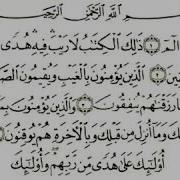 بِسْمِ ٱللَّهِ ٱلرَّحْمَٰنِ ٱلرَّحِيمِ
الٓمٓ ١ ذَٰلِكَ ٱلْكِتَٰبُ لَا رَيْبَ فِيهِ هُدًى
ـقِينَ ٢ ٱلَّذِينَ يُؤْمِنُونَ بِٱلْغَيْبِ وَيُقِيمُونَ ٱلصَّـ
رَزَقْنَٰهُمْ يُنفِقُونَ ٣ وَٱلَّذِينَ يُؤْمِنُونَ بِـ
ـكَ وَمَآ أُنزِلَ مِن قَبْلِكَ وَبِٱلْأَخِرَةِ هُمْ يُوقِنُونَ ٤
أُو۟لَٰٓئِكَ عَلَىٰ هُدًى مِّن رَّبِّهِمْ وَأُو۟لَٰٓئِكَ